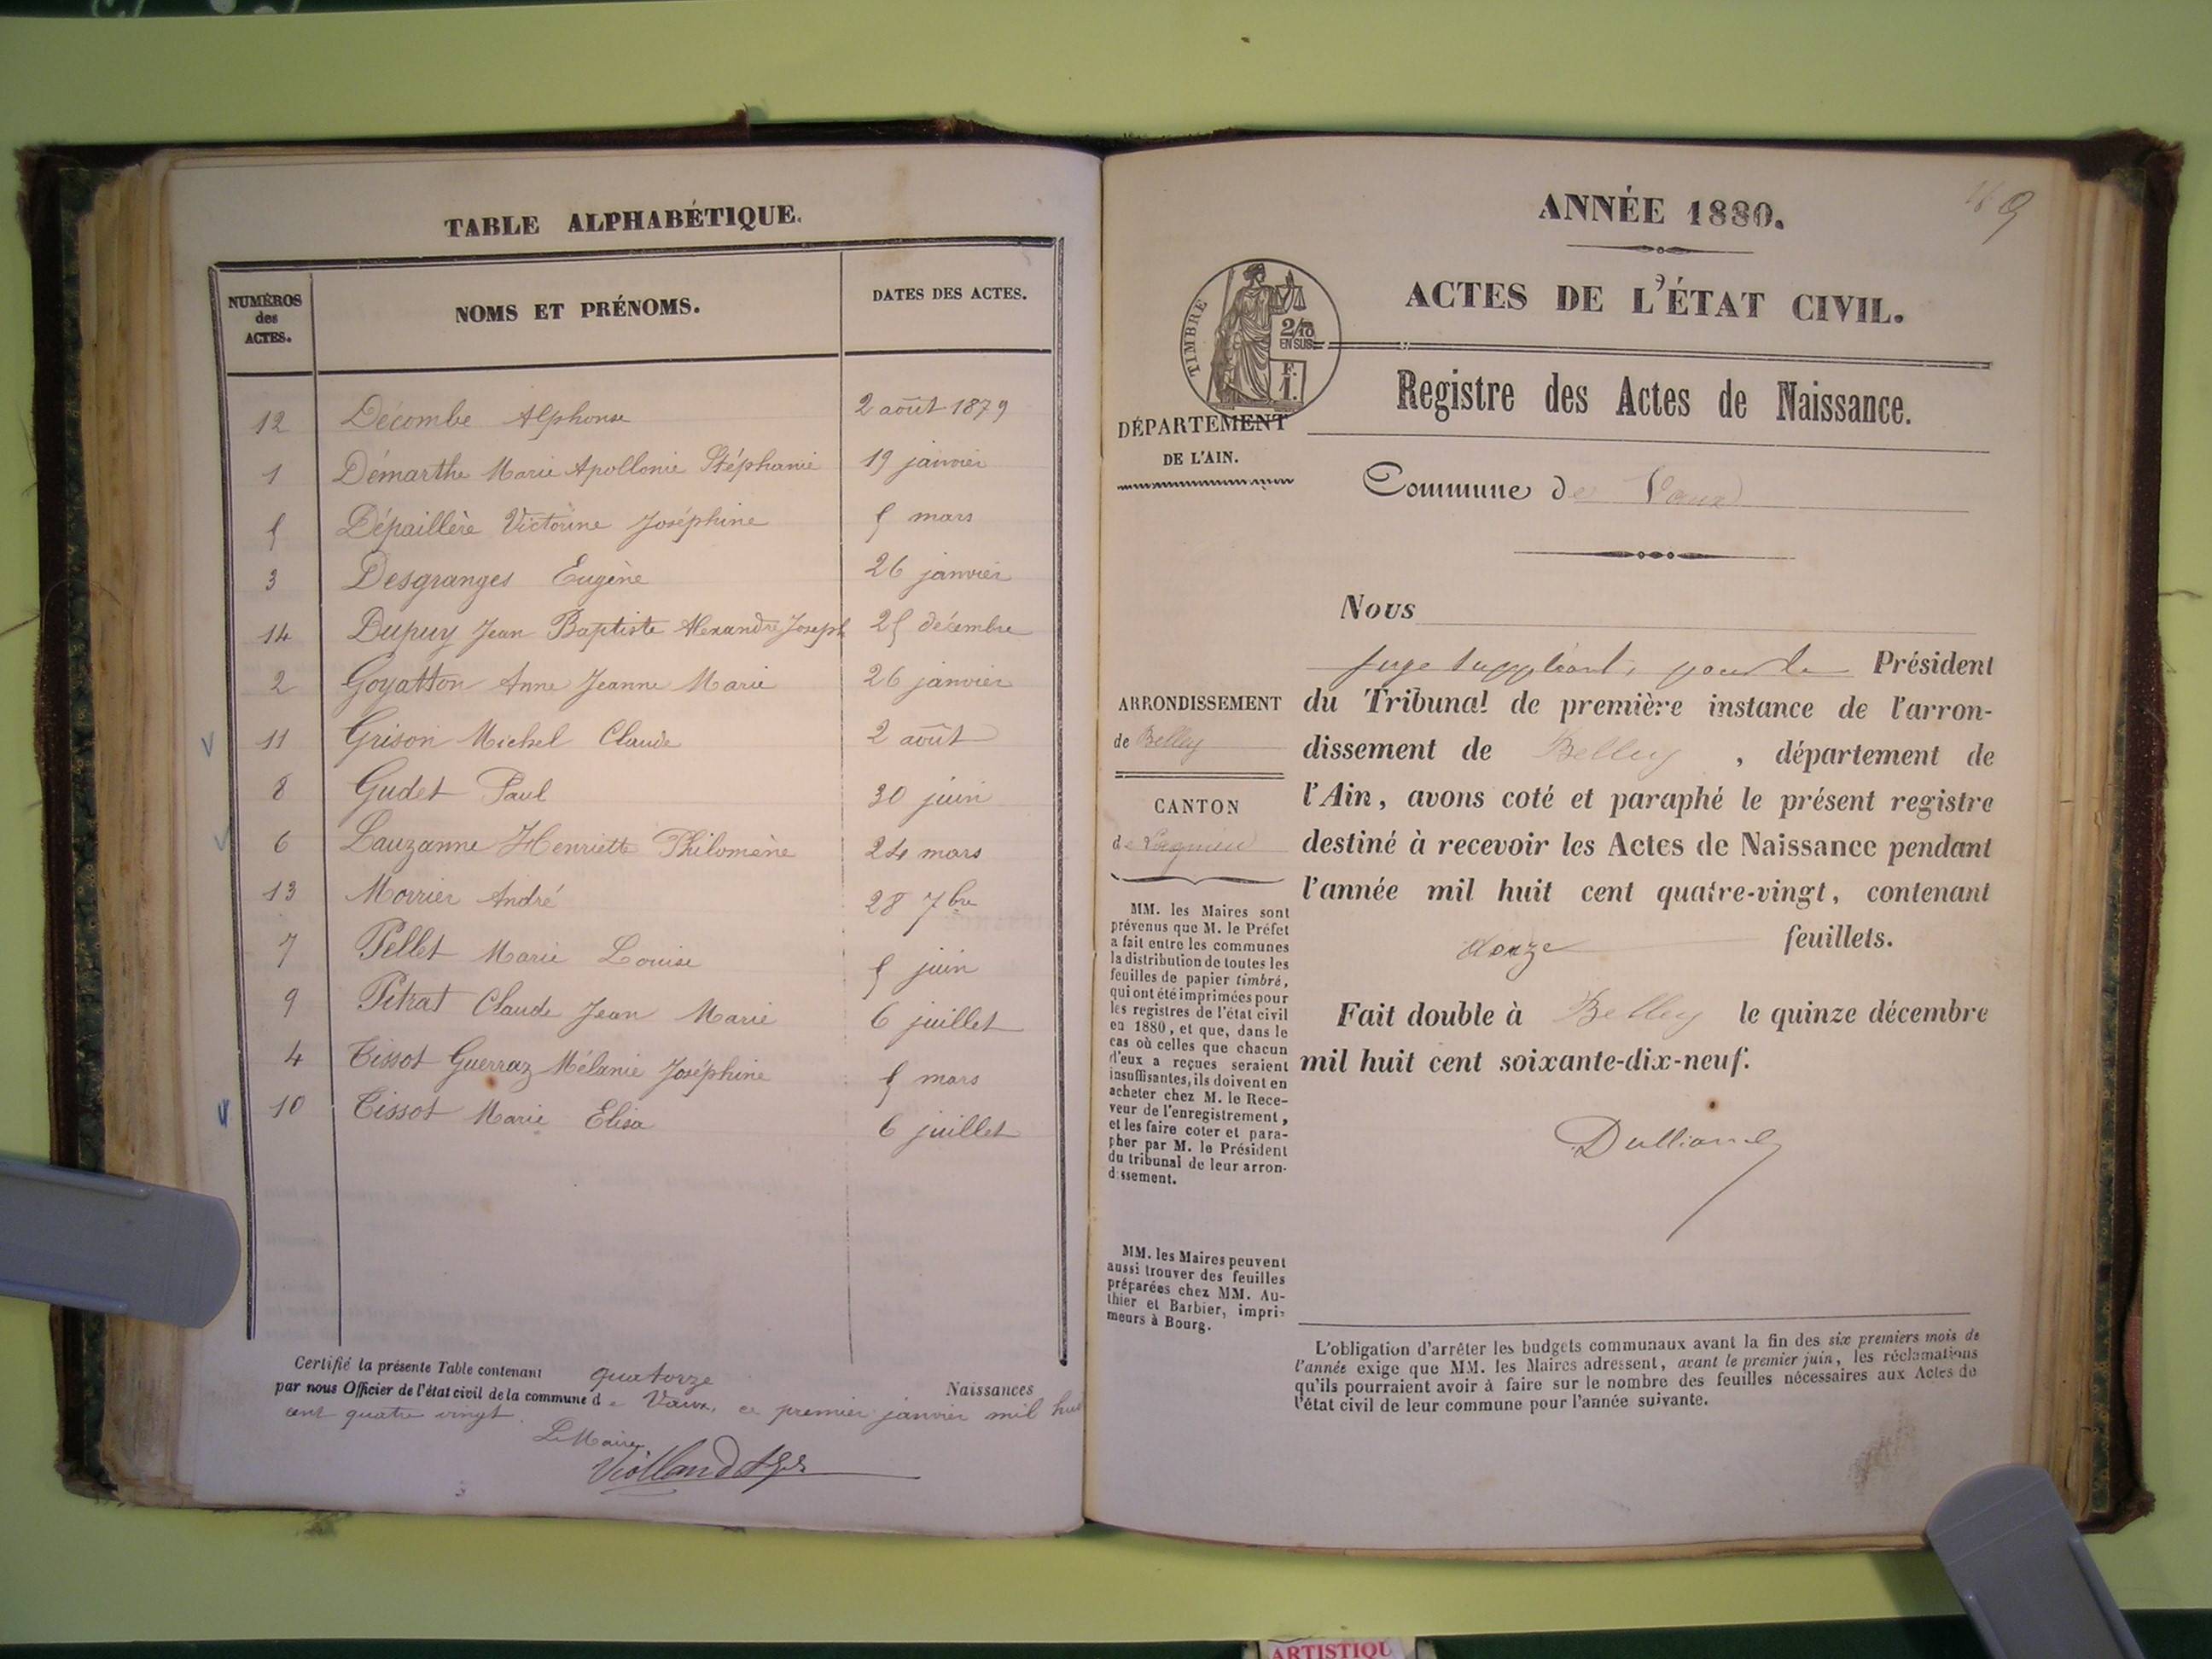 TABLE ALPHABÉTIQUE.
NUMÉROS des ACTES.
NOMS ET PRÉNOMS.
DATES DES ACTES.
12 Décombe Alphonse 2 août 1879
1 Démarthe Marie Apollonie Stéphanie 19 janvier
5 Dépaillère Victorine Joséphine 5 mars
3 Desgranges Eugène 26 janvier
14 Dupuy Jean Baptiste Alexandre Joseph 25 décembre
2 Goyatton Anne Jeanne Marie 26 janvier
11 Grison Michel Claude 2 août
8 Gudet Paul 30 juin
6 Lauzanne Henriette Philomène 24 mars
13 Morrier André 28 7bre
7 Pellet Marie Louise 5 juin
9 Pitrat Claude Jean Marie 6 juillet
4 Tissot Guerraz Mélanie Joséphine 5 mars
10 Tissot Marie Elisa 6 juillet
Certifié la présente Table contenant quatorze Naissances
par nous Officier de l'état civil de la commune de Vaux, ce premier janvier mil huit
cent quatre vingt.
Le Maire,
Violland
ANNÉE 1880.
ACTES DE L'ÉTAT CIVIL.
TIMBRE
2/10
EN SUS
F.
1.
Registre des Actes de Naissance.
DÉPARTEMENT
DE L'AIN.
Commune de Vaux
Nous
juge suppléant, pour le Président
du Tribunal de première instance de l'arron-
dissement de Belley, département de
l'Ain, avons coté et paraphé le présent registre
destiné à recevoir les Actes de Naissance pendant
l'année mil huit cent quatre-vingt, contenant
douze feuillets.
Fait double à Belley le quinze décembre
mil huit cent soixante-dix-neuf.
ARRONDISSEMENT
de Belley
CANTON
de Lagnieu
MM. les Maires sont
prévenus que M. le Préfet
a fait entre les communes
la distribution de toutes les
feuilles de papier timbré,
qui ont été imprimées pour
les registres de l'état civil
en 1880, et que, dans le
cas où celles que chacun
d'eux a reçues seraient
insuffisantes, ils doivent en
acheter chez M. le Rece-
veur de l'enregistrement,
et les faire coter et para-
pher par M. le Président
du tribunal de leur arron-
dissement.
MM. les Maires peuvent
aussi trouver des feuilles
préparées chez MM. Au-
thier et Barbier, impri-
meurs à Bourg.
L'obligation d'arrêter les budgets communaux avant la fin des six premiers mois de
l'année exige que MM. les Maires adressent, avant le premier juin, les réclamations
qu'ils pourraient avoir à faire sur le nombre des feuilles nécessaires aux Actes de
l'état civil de leur commune pour l'année suivante.
ARTISTIQU